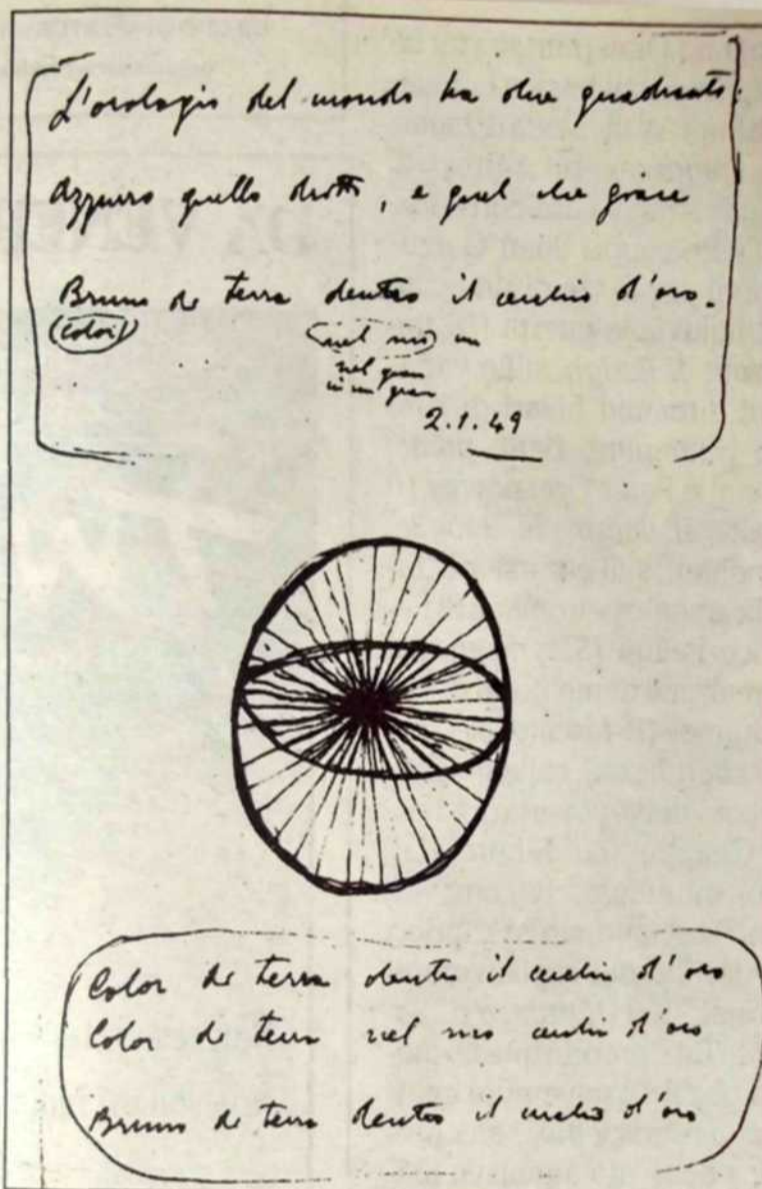 L'orologio del mondo ha due quadranti:
Azzurro quello dritto, e quel che giace
Bruno di terra dentro il cerchio d'oro.
(Color) (nel suo) un
nel gran
in un gran
2.1.49
Color di terra dentro il cerchio d'oro
Color di terra nel suo cerchio d'oro
Bruno di terra dentro il cerchio d'oro